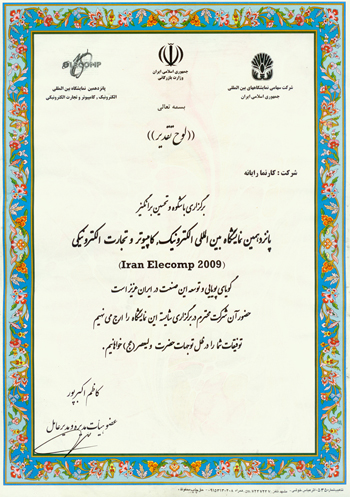 ELECOMP
پانزدهمین نمایشگاه بین المللی
الکترونیک، کامپیوتر و تجارت الکترونیکی
جمهوری اسلامی ایران
وزارت بازرگانی
شرکت سهامی نمایشگاههای بین المللی
جمهوری اسلامی ایران
بسمه تعالی
((لوح تقدیر))
شرکت : کارنما رایانه
برگزاری باشکوه و تحسین برانگیز
پانزدهمین نمایشگاه بین المللی الکترونیک، کامپیوتر و تجارت الکترونیکی
(Iran Elecomp 2009)
گویای پویایی و توسعه این صنعت در ایران عزیز است
حضور آن شرکت محترم در برگزاری شایسته این نمایشگاه را ارج می نهیم
توفیقات شما را در ظل توجهات حضرت ولیعصر (عج) خواهانیم.
کاظم اکبرپور
عضو هیات مدیره و مدیر عامل